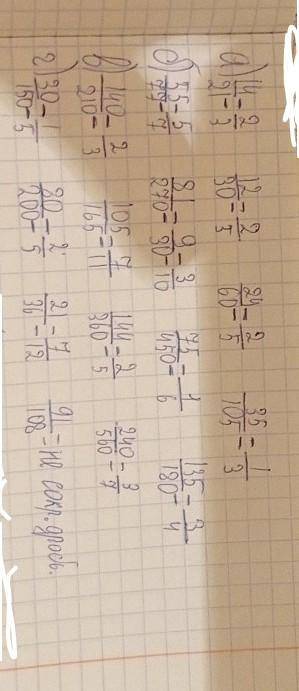 а) 14/21=2/3 12/30=2/5 24/60=2/5 35/105=1/3
б) 35/49=5/7 81/270=9/30=3/10 75/450=1/6 135/180=3/4
в) 140/210=2/3 105/165=7/11 144/360=2/5 240/560=3/7
г) 30/150=1/5 80/200=2/5 21/36=7/12 91/108=не сокр. дробь.